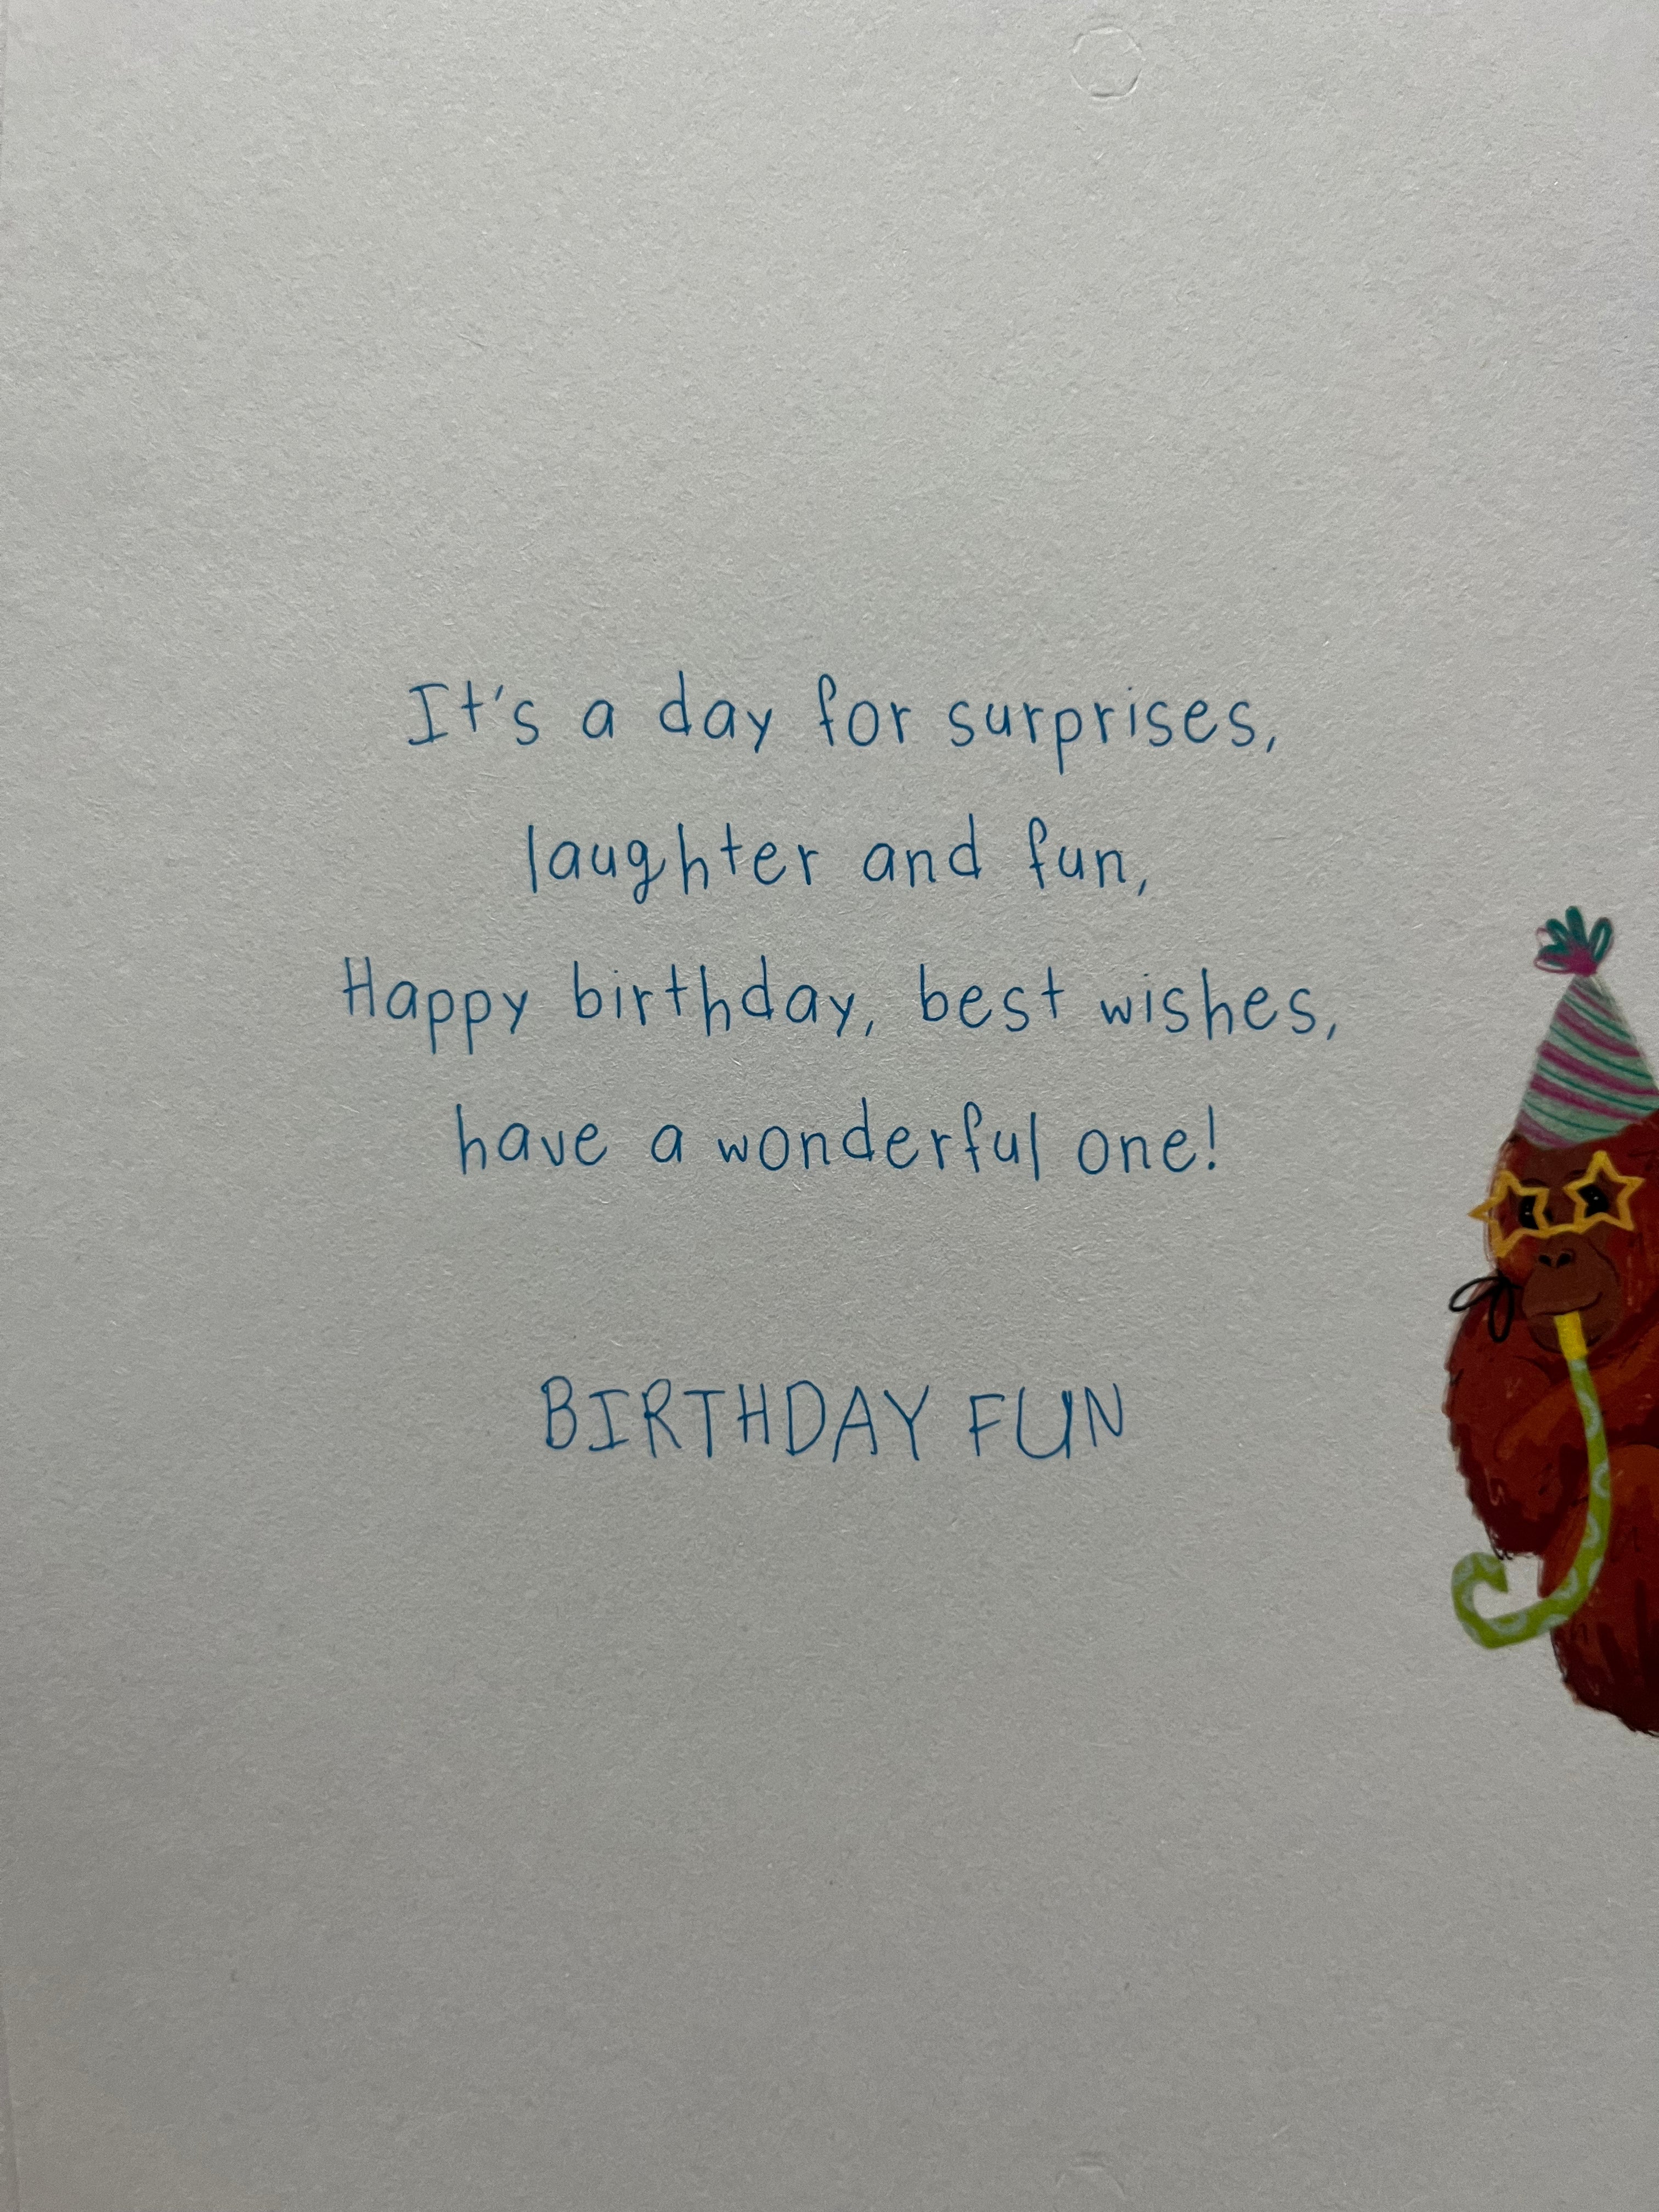 It's a day for surprises,
laughter and fun,
Happy birthday, best wishes,
have a wonderful one!
BIRTHDAY FUN